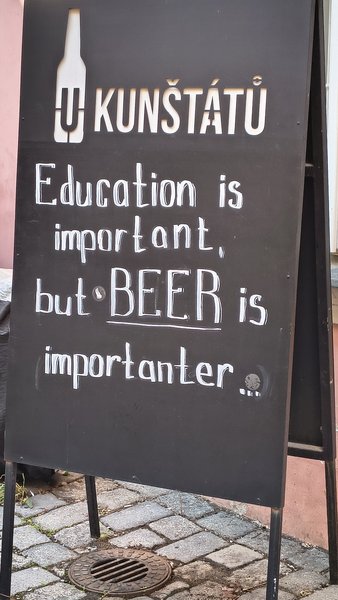 U KUNŠTÁTŮ
Education is
important,
but BEER is
importanter...